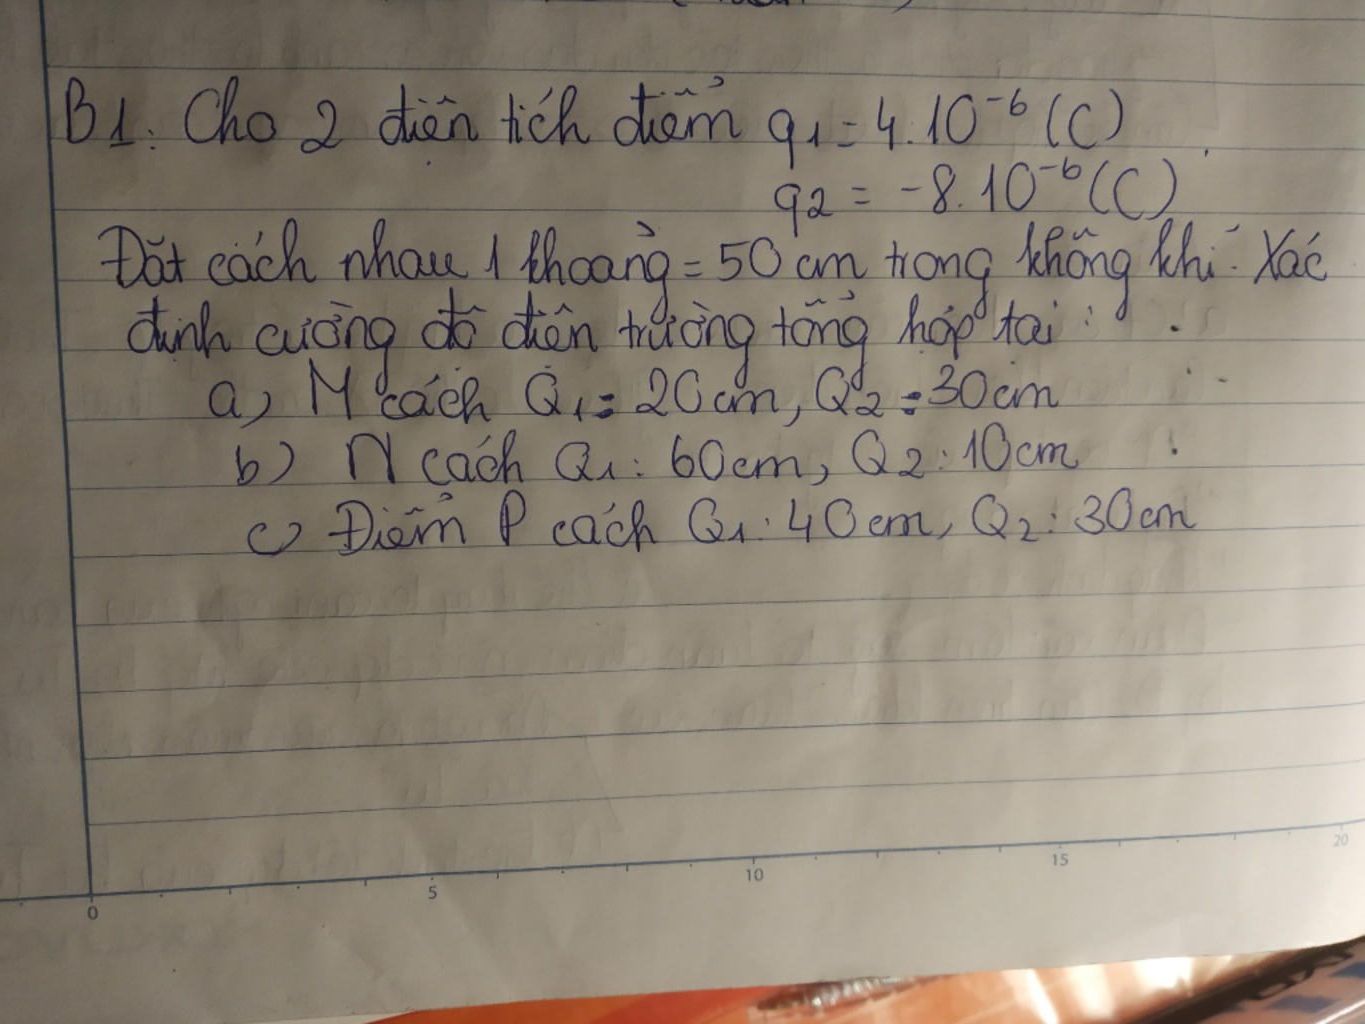 B1. Cho 2 điện tích điểm q1 = 4.10⁻⁶ (C)
q2 = -8.10⁻⁶ (C)
Đặt cách nhau 1 khoảng = 50 cm trong không khí. Xác
định cường độ điện trường tổng hợp tại:
a, M cách Q1 = 20cm, Q2 = 30cm
b) N cách Q1: 60cm, Q2: 10cm
c) Điểm P cách Q1: 40cm, Q2: 30cm
0 5 10 15 20